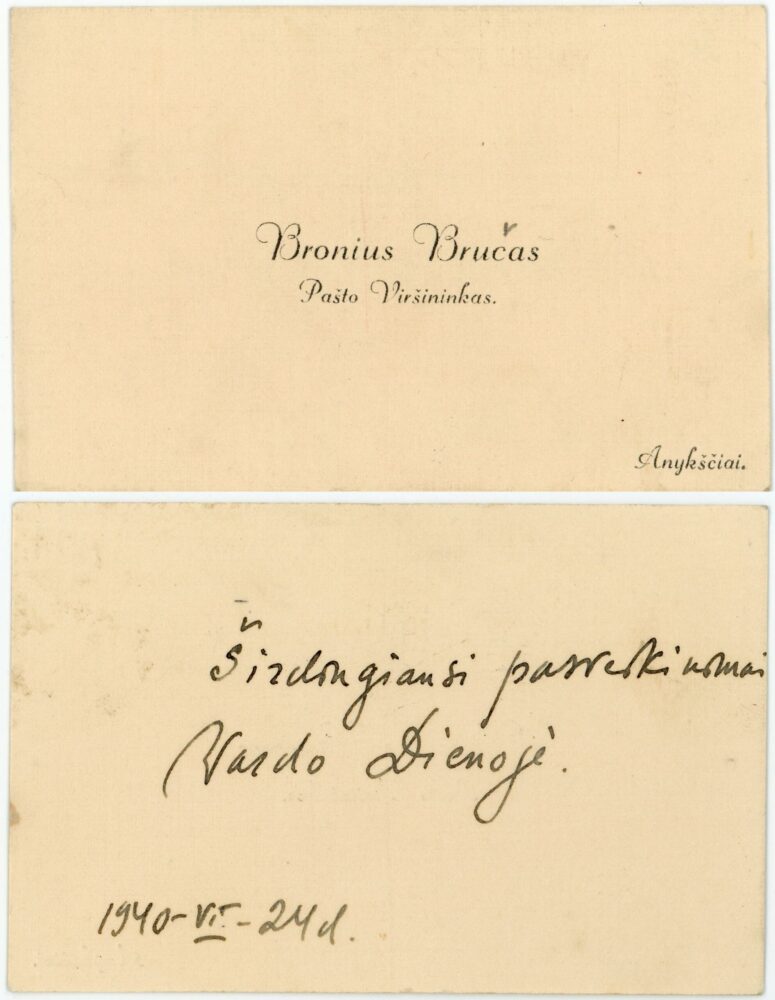 Bronius Bručas
Pašto Viršininkas.
Anykščiai.
Širdingiausi pasveikinimai
Vardo Dienoje.
1940-VI-24d.